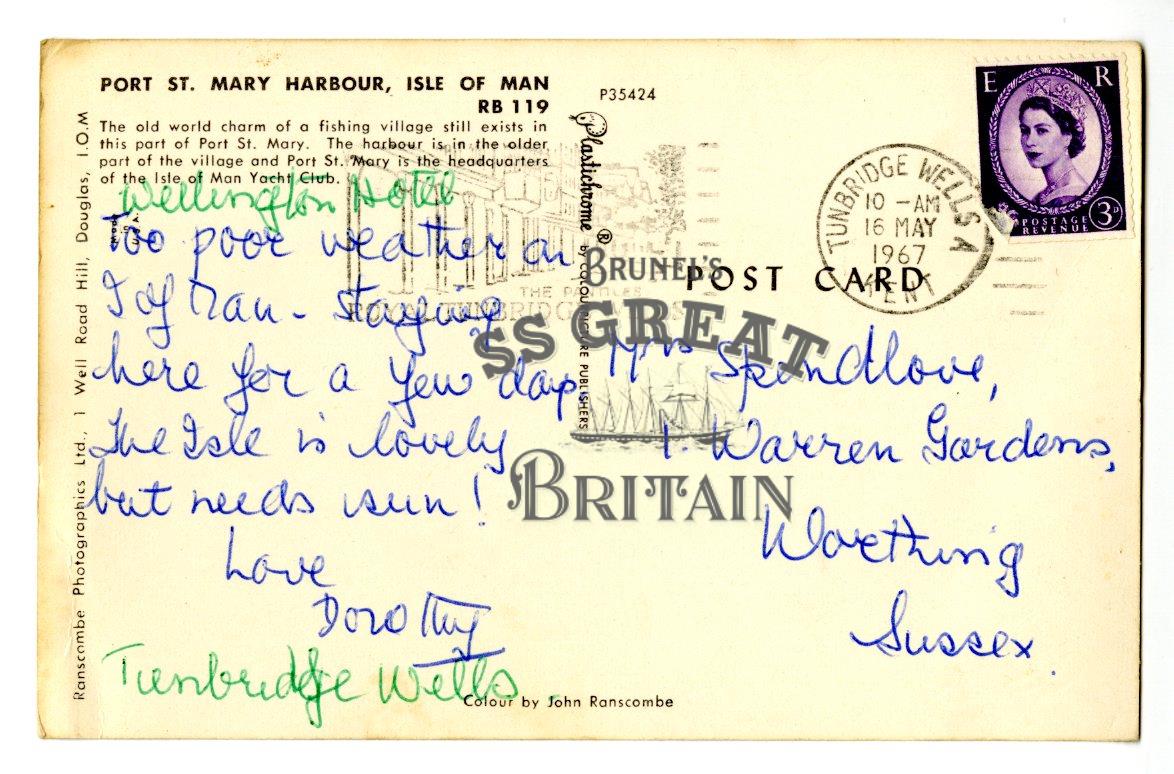 PORT ST. MARY HARBOUR, ISLE OF MAN
RB 119
The old world charm of a fishing village still exists in
this part of Port St. Mary. The harbour is in the older
part of the village and Port St. Mary is the headquarters
of the Isle of Man Yacht Club.
Wellington Hotel
Too poor weather on
I of Man - staying
here for a few days
The Isle is lovely
but needs sun!
Love
Dorothy
Tunbridge Wells.
Ranscombe Photographics Ltd., 1 Well Road Hill, Douglas, I.O.M
P35424
Plastichrome ® by COLOURPICTURE PUBLISHERS
THE PANTILES
ROYAL TUNBRIDGE WELLS
TUNBRIDGE WELLS A
10 -AM
16 MAY
1967
KENT
E R
POSTAGE
REVENUE
3D
POST CARD
BRUNEL'S
SS GREAT
BRITAIN
Mrs Spendlove,
1. Warren Gardens,
Worthing
Sussex.
Colour by John Ranscombe